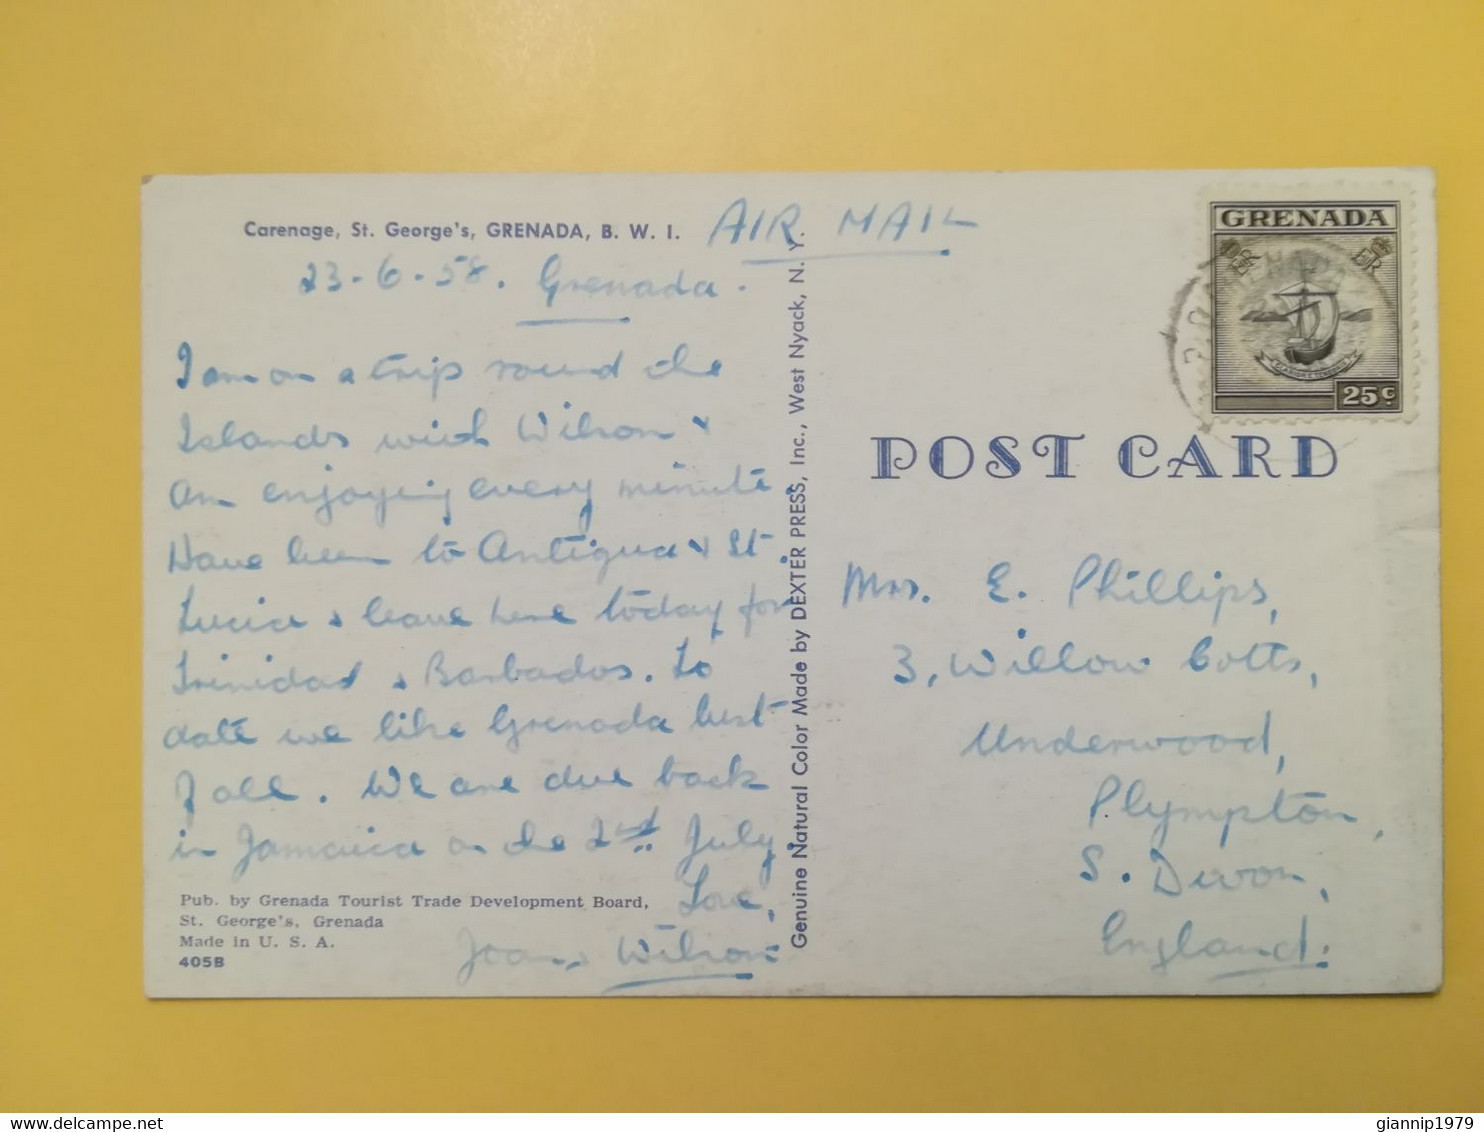 Carenage, St. George's, GRENADA, B. W. I.
AIR MAIL
23-6-58. Grenada.
I am on a trip round the
Islands with Wilson &
am enjoying every minute.
Have been to Antigua & St.
Lucia & leave here today for
Trinidad & Barbados. To
date we like Grenada best
of all. We are due back
in Jamaica on the 2nd July.
Love,
Joan & Wilson
Pub. by Grenada Tourist Trade Development Board,
St. George's, Grenada
Made in U. S. A.
405B
Genuine Natural Color Made by DEXTER PRESS, Inc., West Nyack, N. Y.
GRENADA
25c
POST CARD
Mrs. E. Phillips,
3, Willow Cotts,
Underwood,
Plympton,
S. Devon,
England.
giannip1979